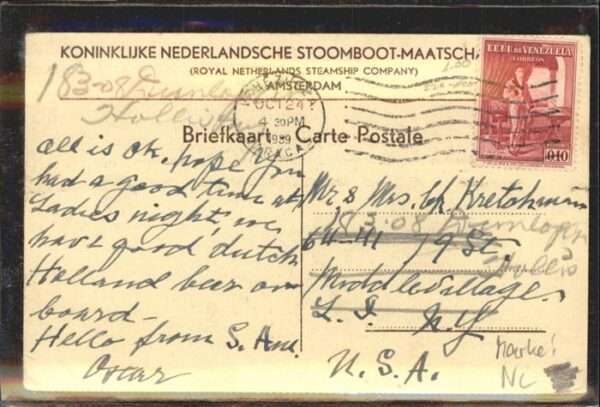 KONINKLIJKE NEDERLANDSCHE STOOMBOOT-MAATSCHA
(ROYAL NETHERLANDS STEAMSHIP COMPANY)
AMSTERDAM
183-08
Hollis
OCT 24
4 30 PM
1939
EEUU DE VENEZUELA
CORREOS
0,10
Briefkaart - Carte Postale
all is ok, hope you
had a good time at
Ladies night, we
have good dutch
Holland beer on
board-
Hello from S. Am.
Oscar
Mr & Mrs. Ch. Kretchmann
183-08
79 St.
Hollis
Middle Village
L. I. N.Y
U.S.A.